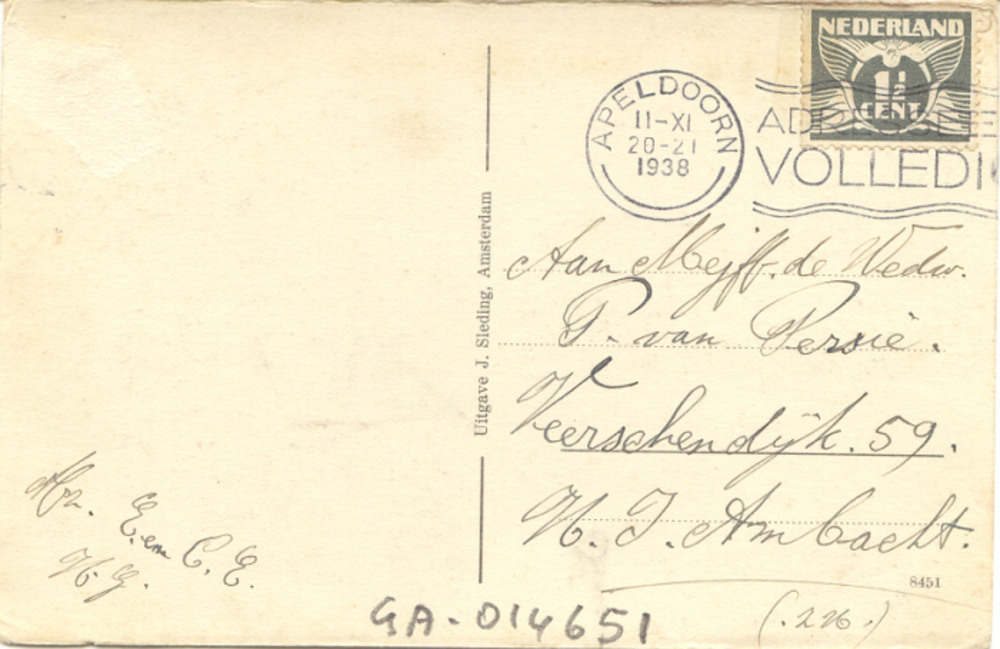 NEDERLAND
1½
CENT
APELDOORN
11-XI
20-21
1938
VOLLEDI
Uitgave J. Sleding, Amsterdam
Aan Mejff. de Wedw.
P. van Persië.
Veerschendijk. 59.
H. I. Ambacht.
8451
E. en C. E.
GA-014651